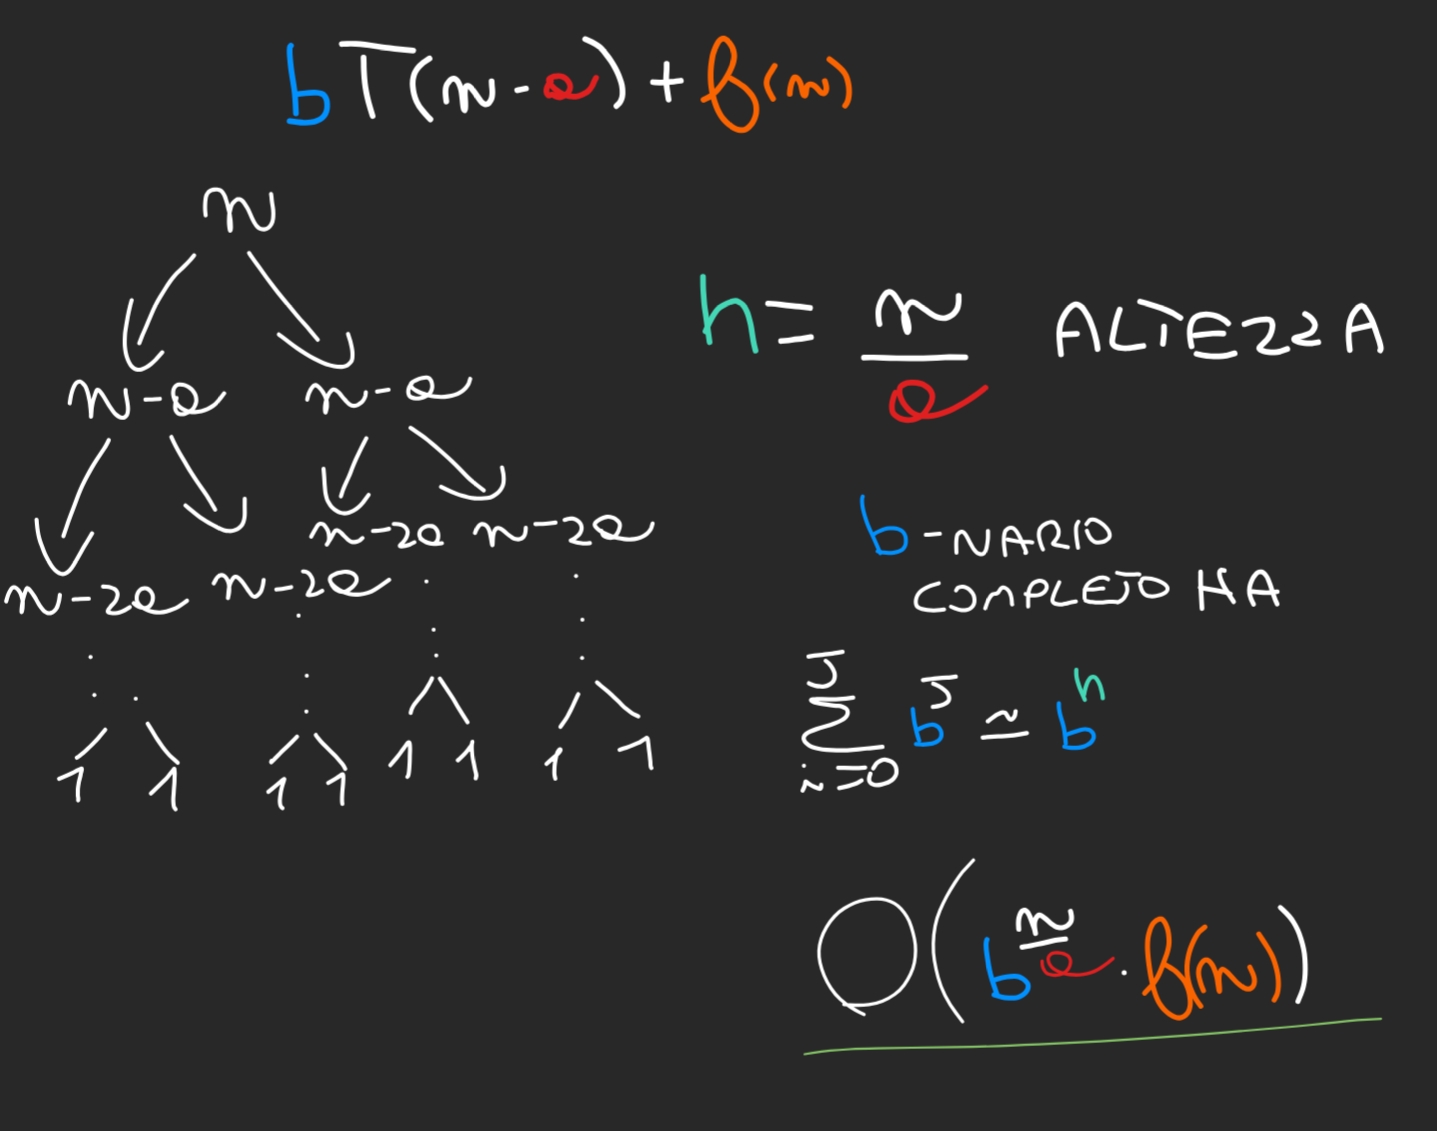 bT(n-a)+f(n)
n
n-a n-a
n-2a n-2a n-2a n-2a
1 1 1 1 1 1 1 1
h = n/a ALTEZZA
b-NARIO
COMPLETO HA
J
∑ b^J ≃ b^h
i=0
O(b^(n/a) · f(n))